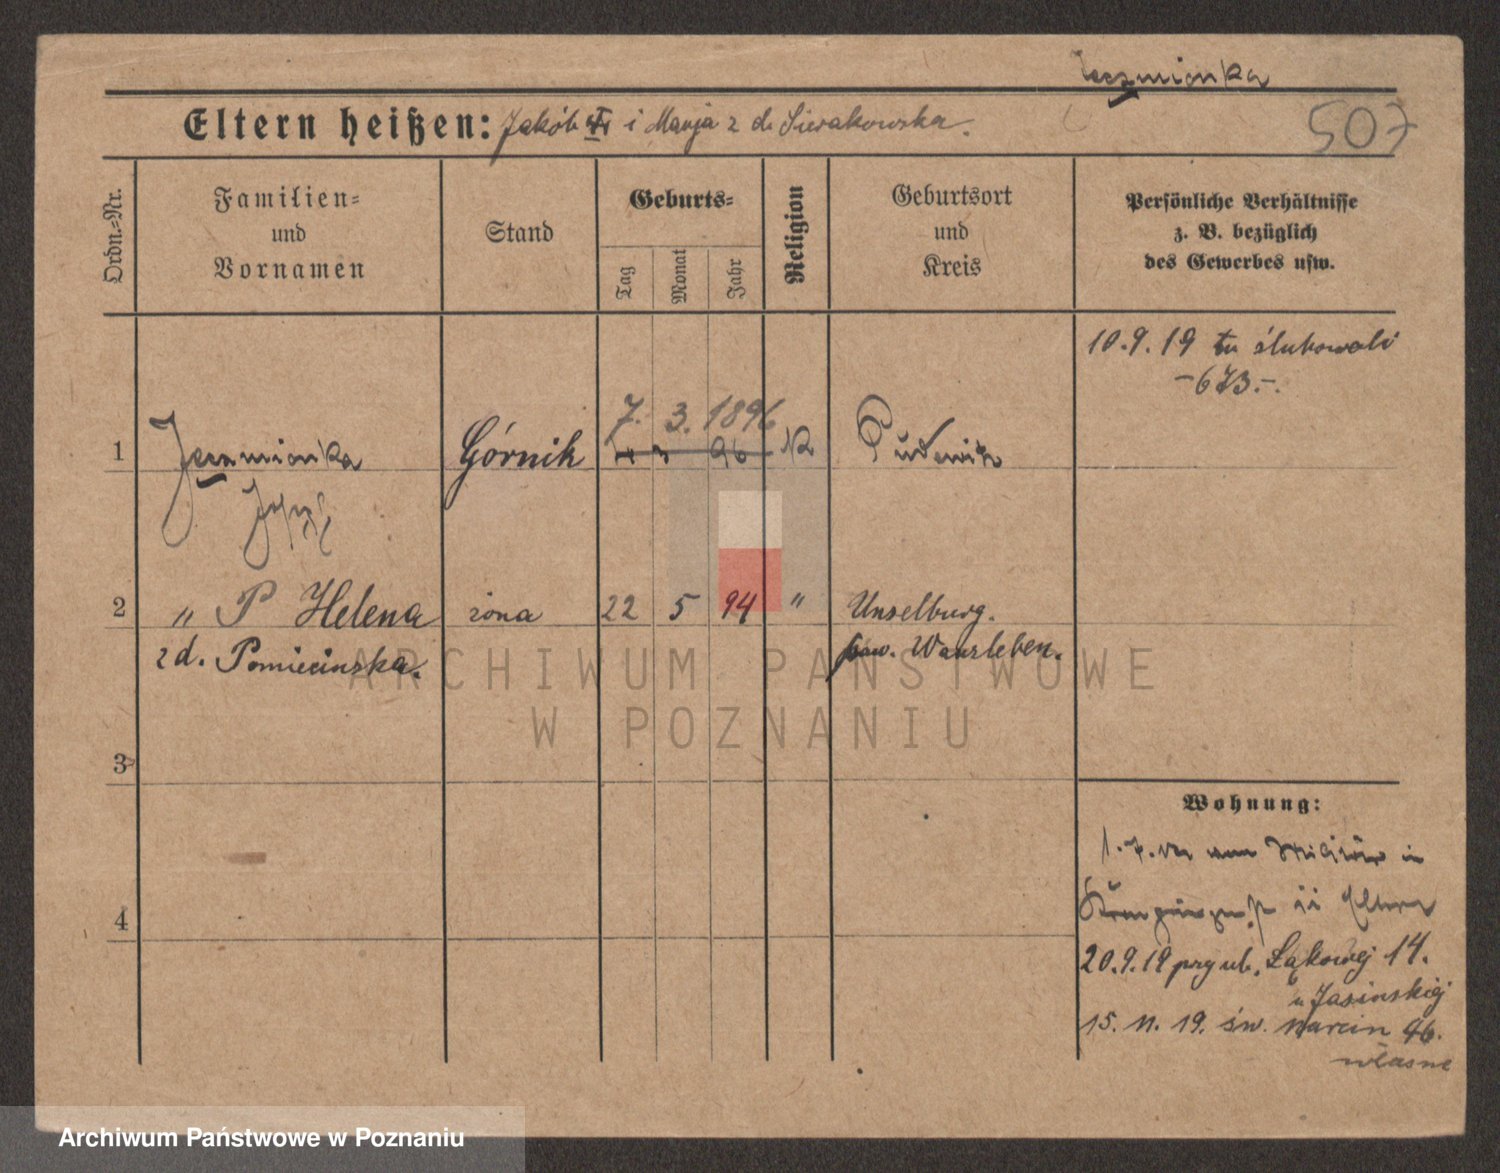 Jęczmionka
507
Eltern heißen: Jakób i Marja z d. Sierakowska.
Ordn.-Nr.
Familien-
und
Vornamen
Stand
Geburts-
Tag
Monat
Jahr
Religion
Geburtsort
und
Kreis
Persönliche Verhältnisse
z. B. bezüglich
des Gewerbes usw.
10.9.19 tu ślubowali
-673.-.
7. 3. 1896
1 Jęczmionka Górnik 96 k Pudewitz
Józef
2 " P Helena żona 22 5 94 " Unselburg.
z d. Pomiecinska. pow. Wanzleben.
3
4
Wohnung:
1.7. Militär in
Eltern
20.9.19 przy ul. Łąkowej 14.
u Jasinskiej
15. 11. 19. św. Marcin 46.
własne
ARCHIWUM PAŃSTWOWE
W POZNANIU
Archiwum Państwowe w Poznaniu